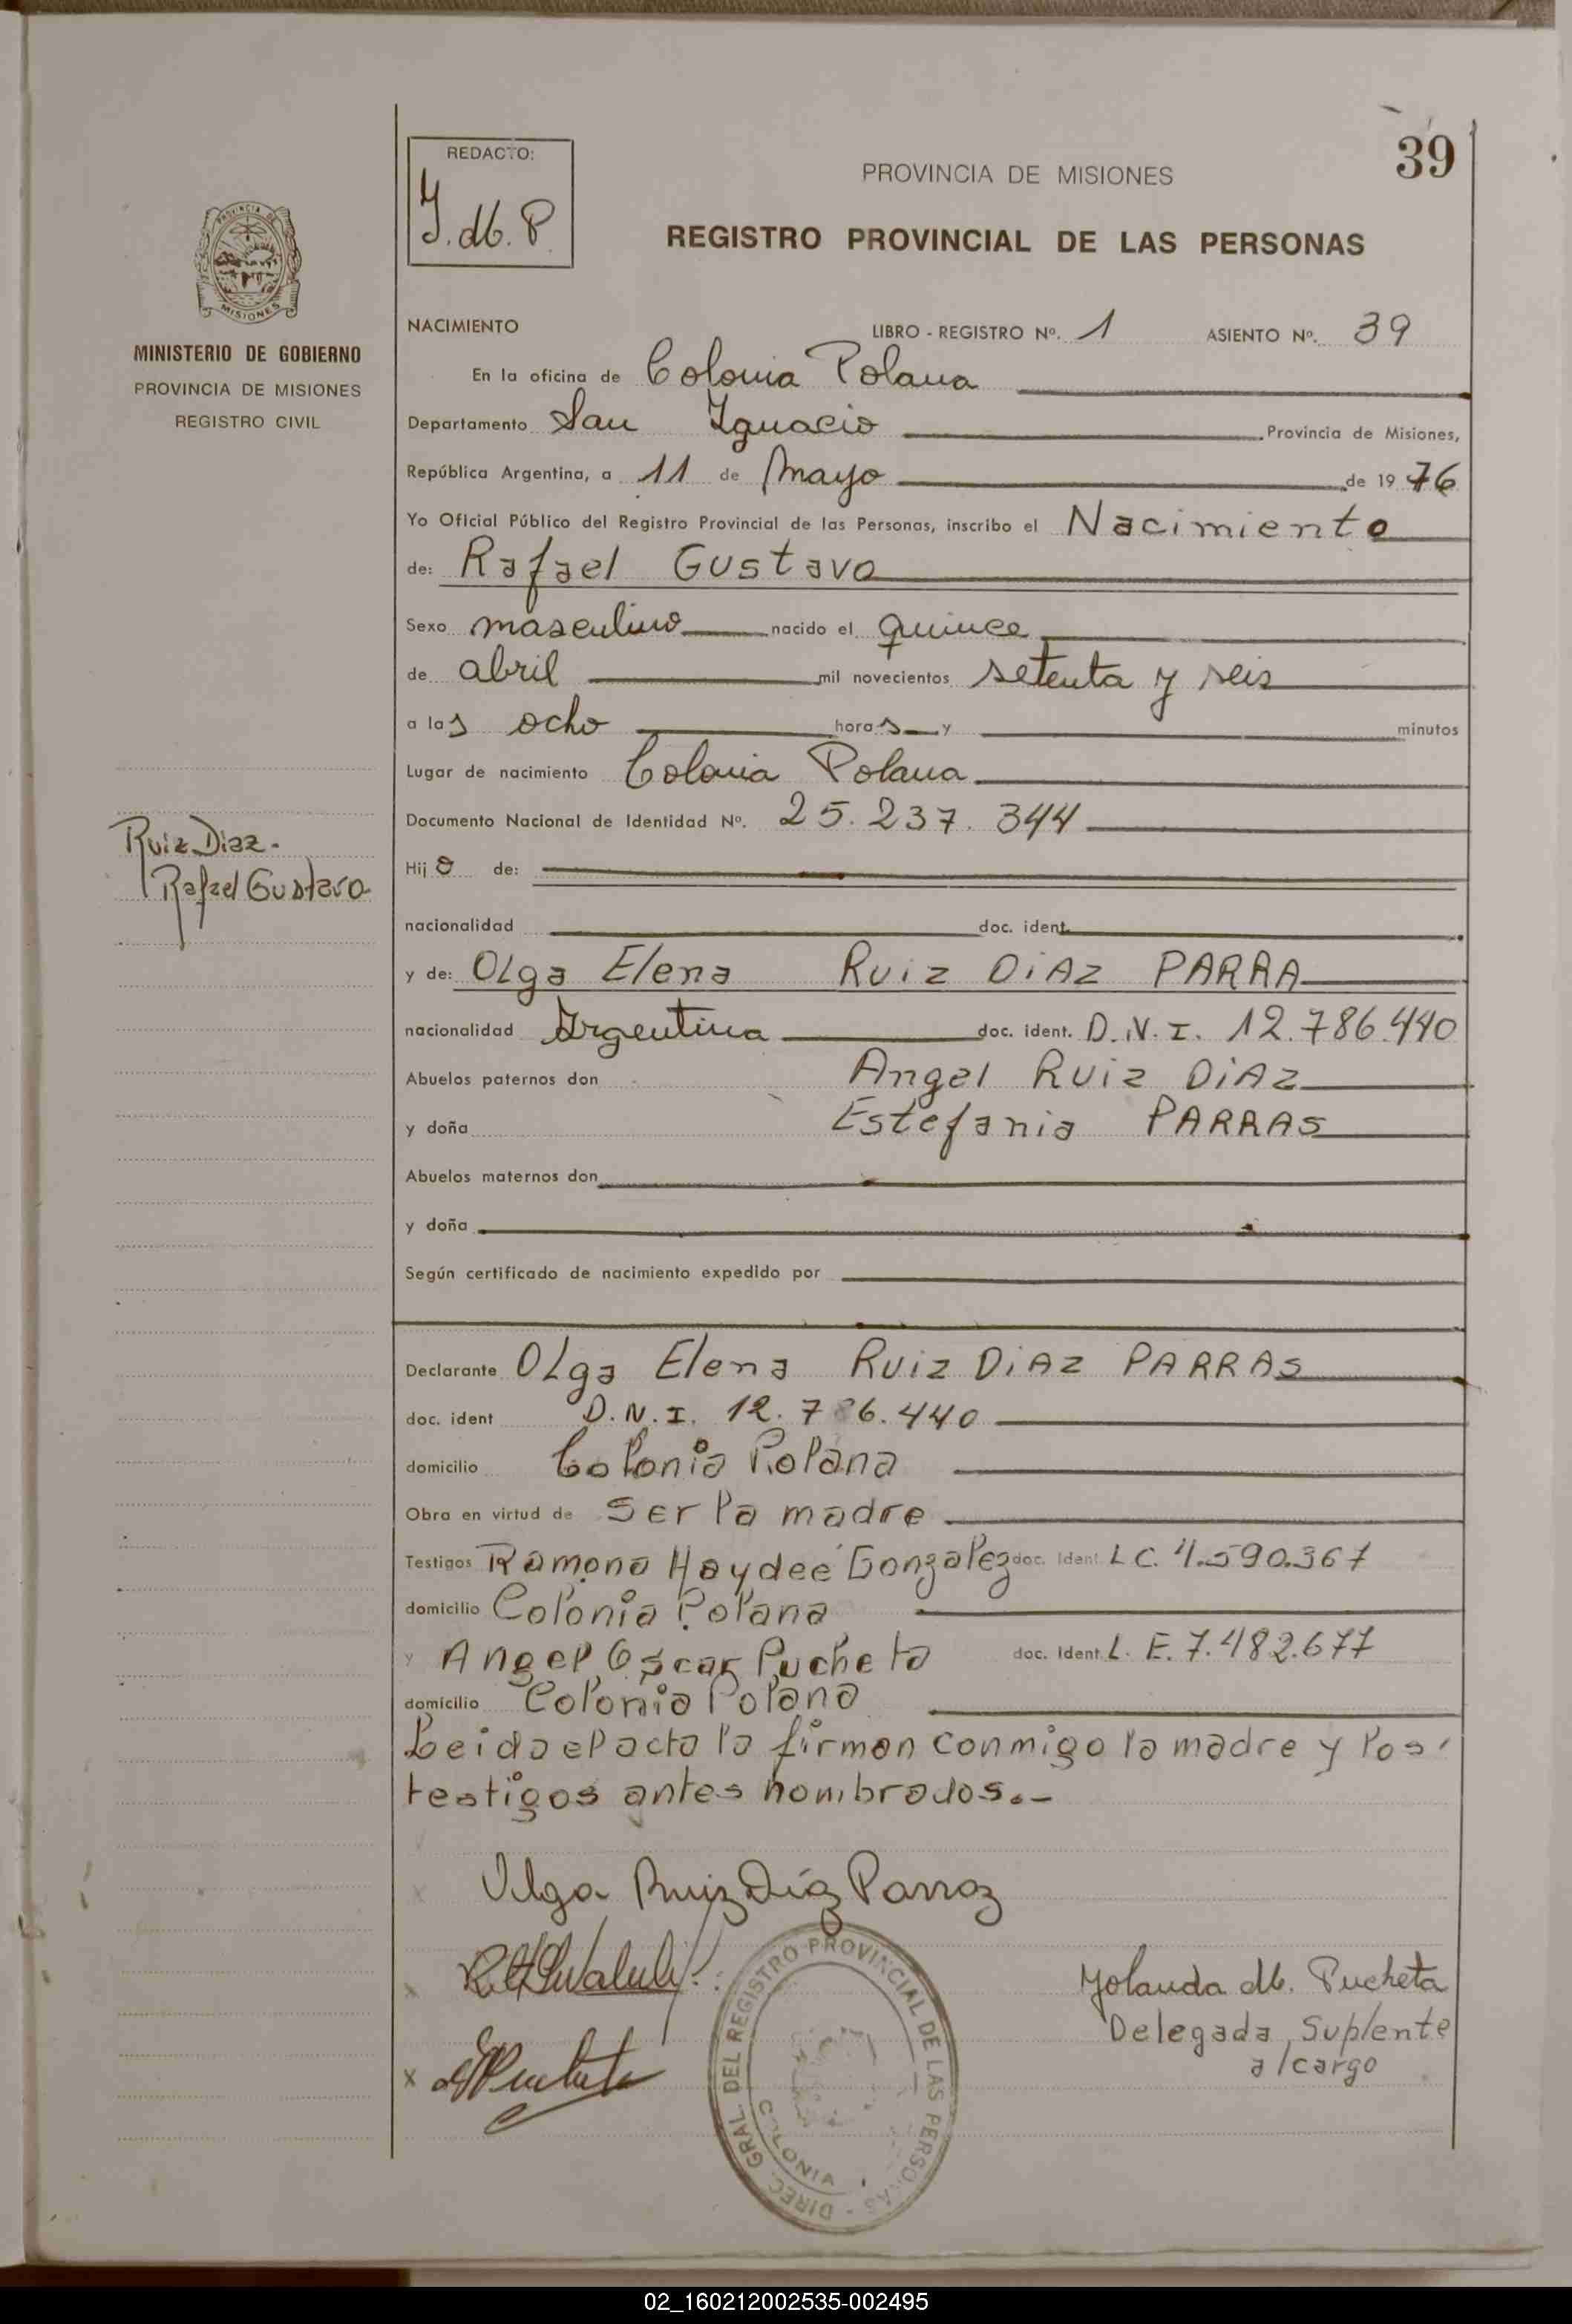 39
REDACTO:
Y. M. P.
PROVINCIA DE MISIONES
REGISTRO PROVINCIAL DE LAS PERSONAS
PROVINCIA DE
MISIONES
MINISTERIO DE GOBIERNO
PROVINCIA DE MISIONES
REGISTRO CIVIL
NACIMIENTO LIBRO - REGISTRO Nº. 1 ASIENTO Nº. 39
En la oficina de Colonia Polana
Departamento San Ignacio Provincia de Misiones,
República Argentina, a 11 de Mayo de 1976
Yo Oficial Público del Registro Provincial de las Personas, inscribo el Nacimiento
de: Rafael Gustavo
Sexo masculino nacido el quince
de abril mil novecientos setenta y seis
a las ocho horas y minutos
Lugar de nacimiento Colonia Polana
Documento Nacional de Identidad Nº. 25.237.344
Ruiz Diaz.
Rafael Gustavo
Hijo de:
nacionalidad doc. ident.
y de: OLga Elena Ruiz DiAz PARRA
nacionalidad Argentina doc. ident. D.N.I. 12.786.440
Abuelos paternos don Angel Ruiz DiAz
y doña Estefania PARRAS
Abuelos maternos don
y doña
Según certificado de nacimiento expedido por
Declarante OLga Elena Ruiz DiAz PARRAS
doc. ident D.N.I. 12.786.440
domicilio Colonia Polana
Obra en virtud de ser la madre
Testigos Ramona Haydeé Gonzalez doc. Ident. L C. 4.590.367
domicilio Colonia Polana
y Angel Oscar Pucheta doc. Ident. L. E. 7.482.677
domicilio Colonia Polana
Leida el acta la firman conmigo la madre y los
testigos antes nombrados.-
Olga Ruiz Díaz Parraz
Yolanda M. Pucheta
Delegada Suplente
a/cargo
DIREC. GRAL. DEL REGISTRO PROVINCIAL DE LAS PERSONAS -
COLONIA
02_160212002535-002495